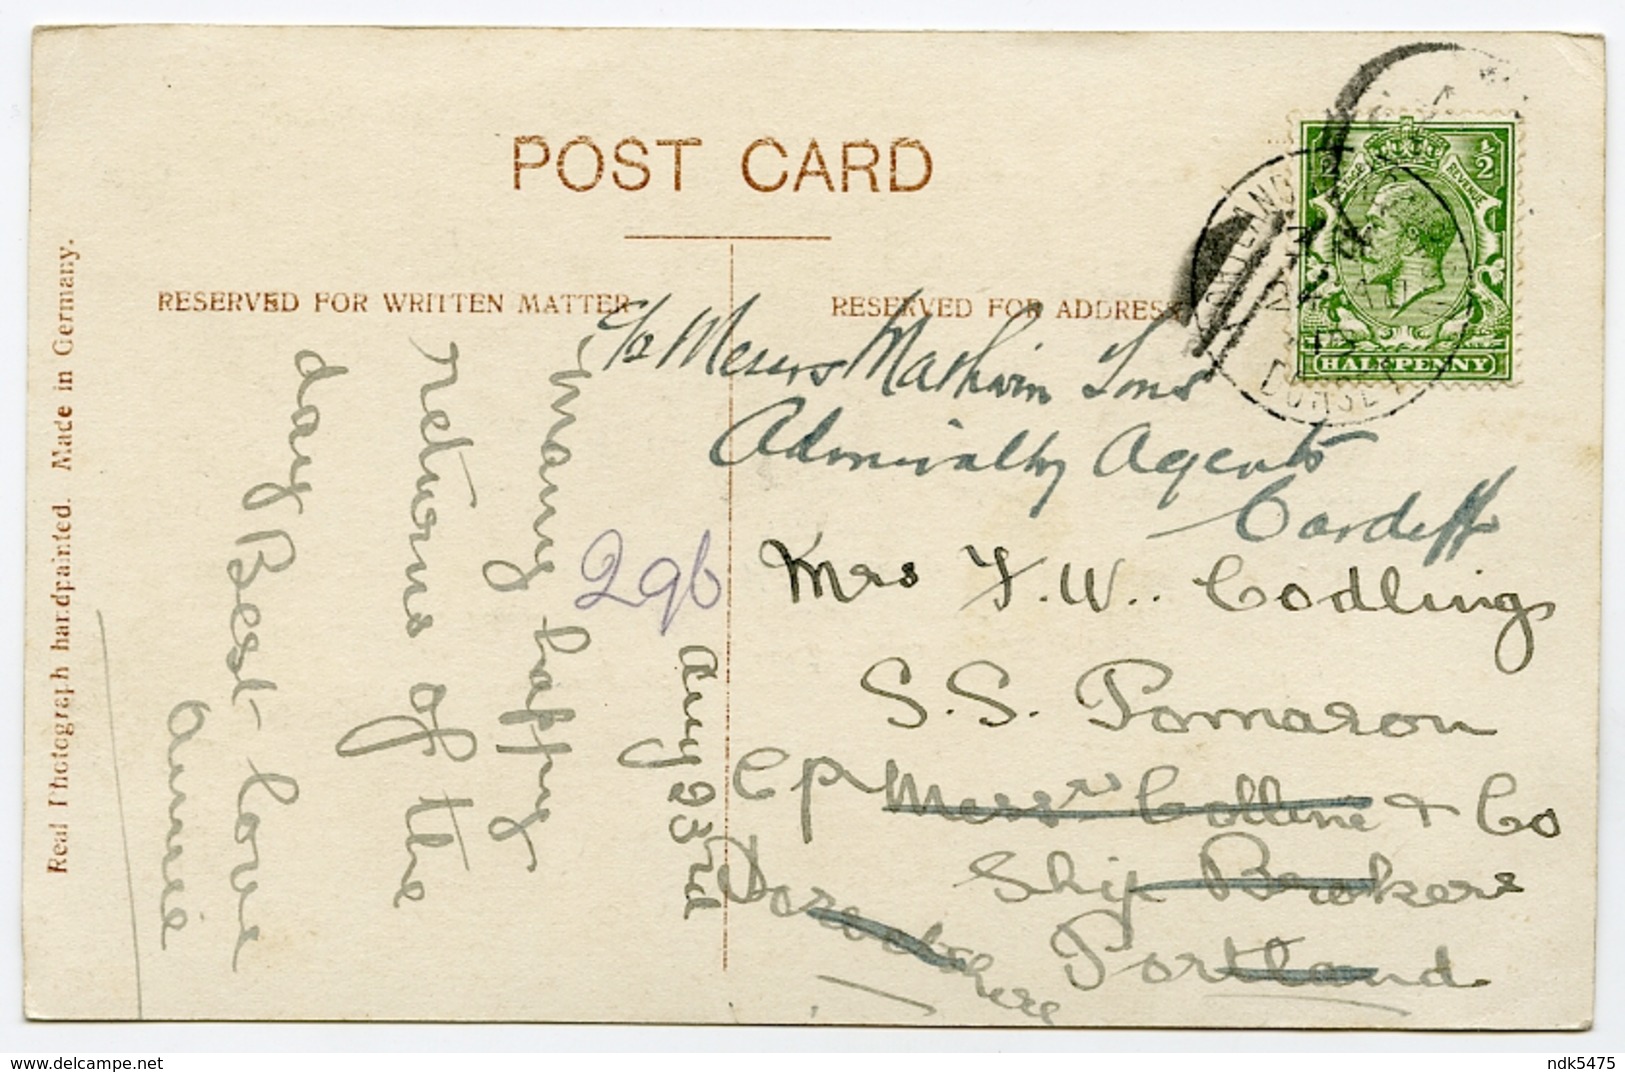 POST CARD
RESERVED FOR WRITTEN MATTER
RESERVED FOR ADDRESS
Real Photograph handpainted. Made in Germany.
Aug 23rd
many happy
returns of the
day Best love
annie
296
c/o Messrs Mathwin Sons
Admiralty Agents
Cardiff
Mrs F. W.. Codling
S. S. Pomaron
Messrs Colline & Co
Ship Brokers
Portland
½ ½
REVENUE
HALFPENNY
PORTLAND
DORSET
delcampe.net
ndk5475